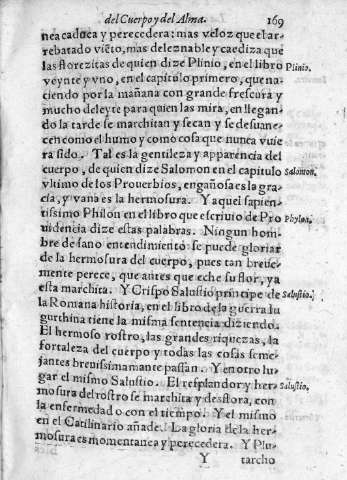 del Cuerpo y del Alma. 169
nea caduca y perecedera: mas veloz que el ar-
rebatado viẽto, mas deleznable y caediza que
las florezitas de quien dize Plinio, en el libro Plinio.
veynte y vno, en el capitulo primero, que na-
ciendo por la mañana con grande frescura y
mucho deleyte para quien las mira, en llegan-
do la tarde se marchitan y secan y se desuane-
cen como el humo y como cosa que nunca vuie
ra sido. Tal es la gentileza y apparencia del
cuerpo, de quien dize Salomon en el capitulo Salomon.
vltimo de los Prouerbios, engañosa es la gra-
cia, y vana es la hermosura. Y aquel sapien-
tissimo Philon en el libro que escriuio de Pro Phylon.
uidencia dize estas palabras. Ningun hom-
bre de sano entendimiento se puede gloriar
de la hermosura del cuerpo, pues tan breue-
mente perece, que antes que eche su flor, ya
esta marchita. Y Crispo Salustio principe de Salustio.
la Romana historia, en el libro de la guerra Iu
gurthina tiene la misma sentencia diziendo.
El hermoso rostro, las grandes riquezas, la
fortaleza del cuerpo y todas las cosas seme-
jantes breuissimamante passan. Y en otro lu-
gar el mismo Salustio. El resplandor y her- Salustio.
mosura del rostro se marchita y desflora, con
la enfermedad o con el tiempo. Y el mismo
en el Catilinario añade. La gloria de la her-
mosura es momentanea y perecedera. Y Plu-
Y tarcho